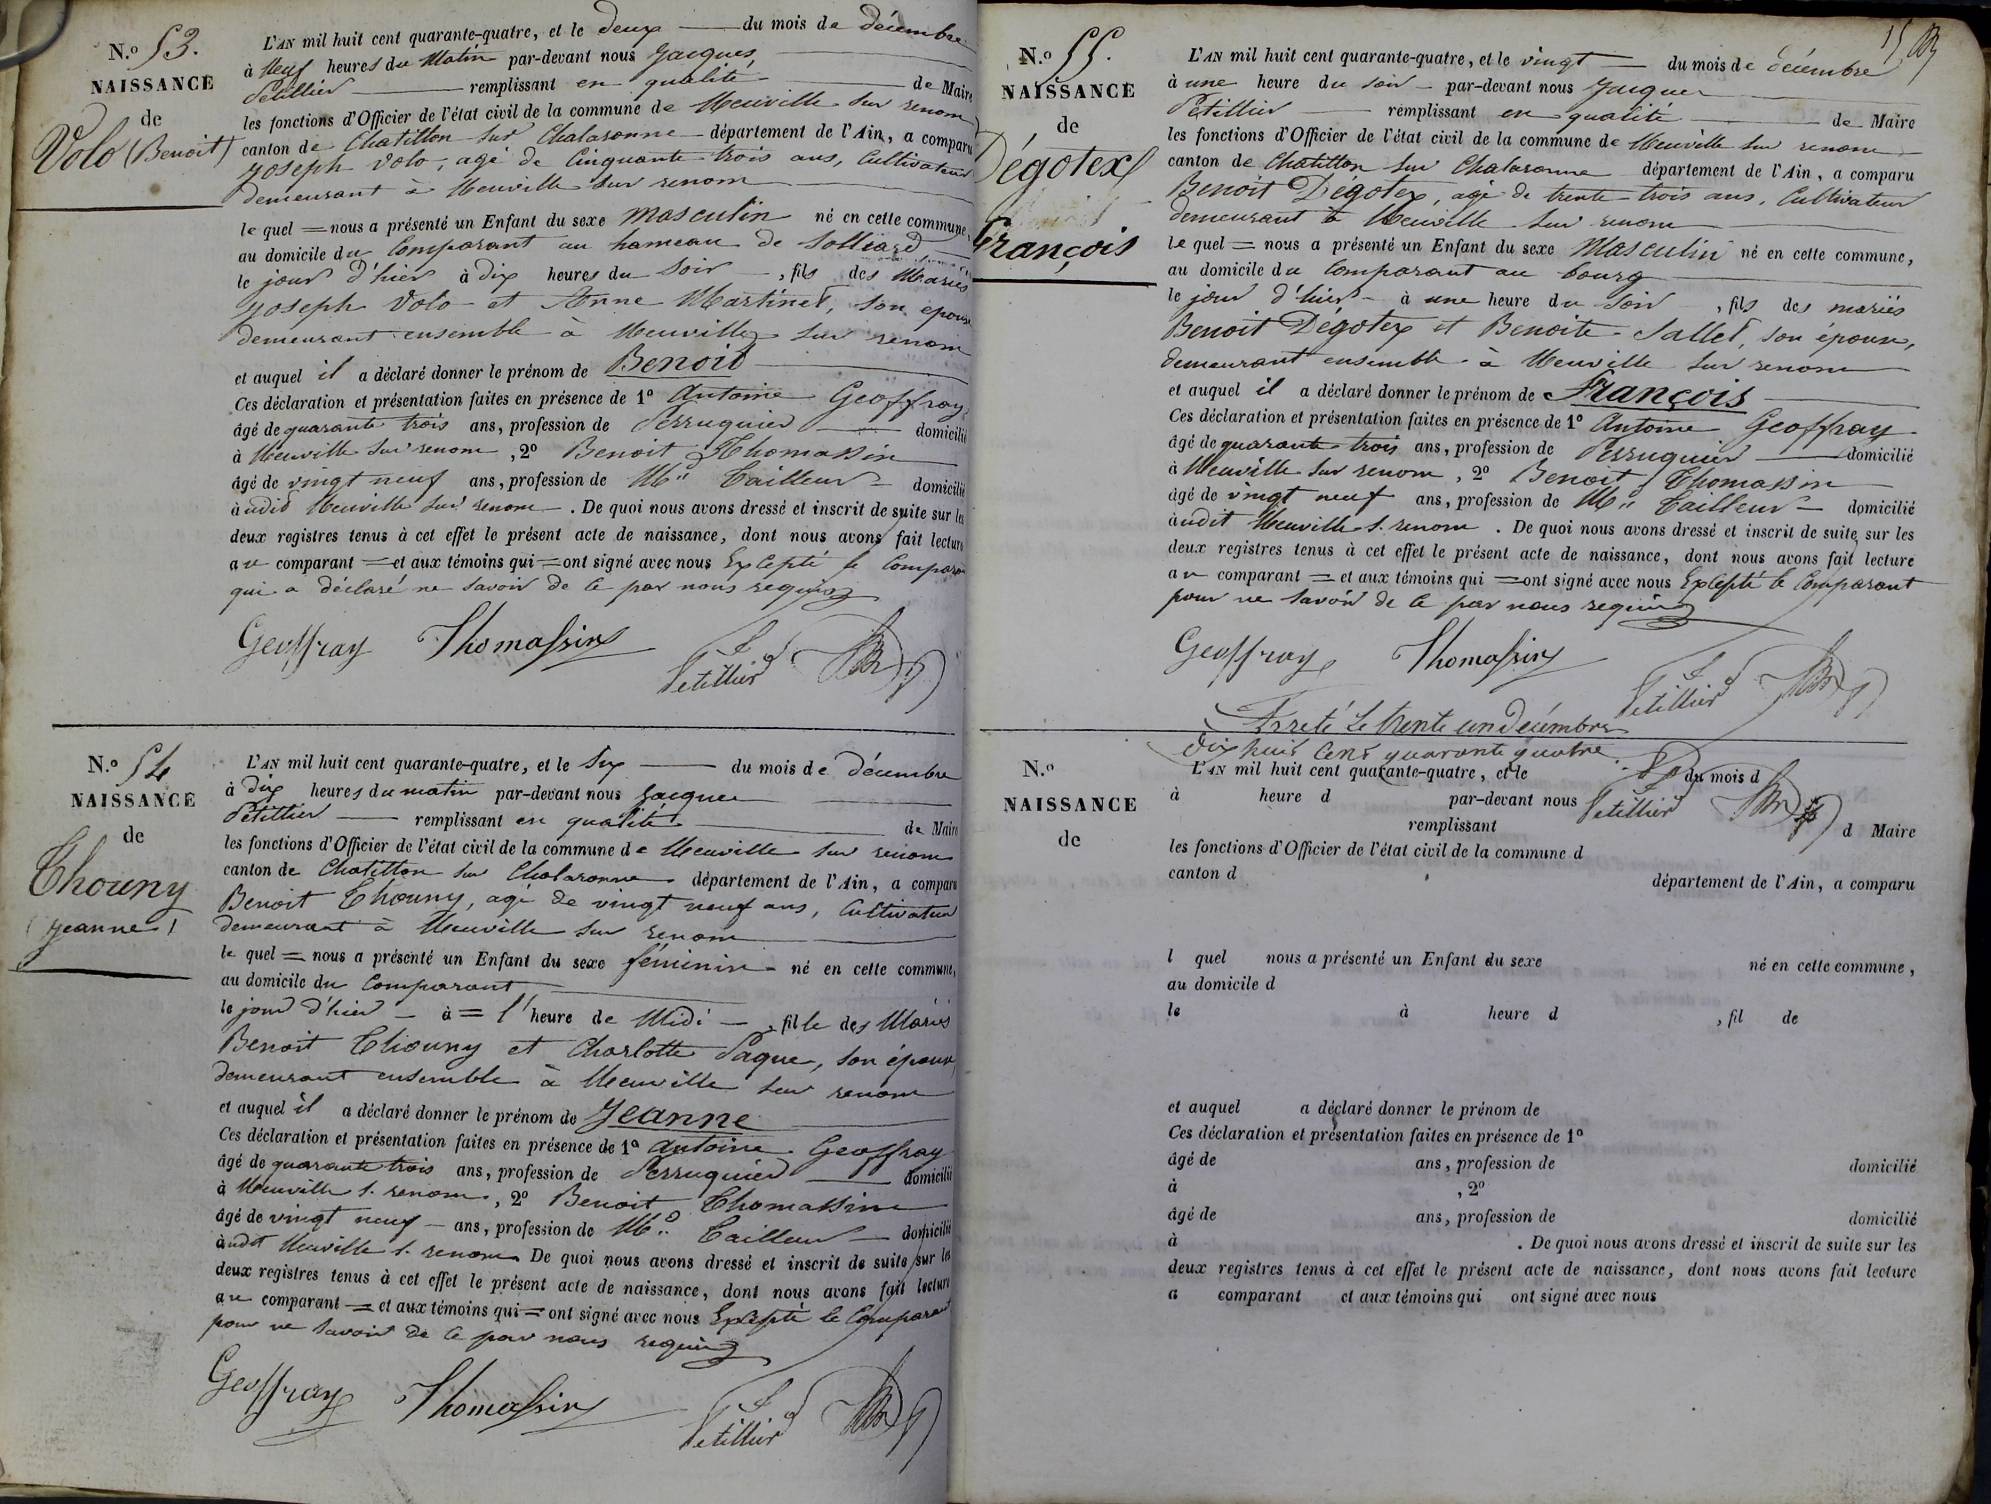 N.º 53.
NAISSANCE
de
Volo (Benoit)
L'AN mil huit cent quarante-quatre, et le deux du mois de décembre
à Neuf heures du Matin par-devant nous Jacques
Petillier remplissant en qualité de Maire
les fonctions d'Officier de l'état civil de la commune de Neuville sur renom
canton de Chatillon sur Chalaronne département de l'Ain, a comparu
Joseph Volo, agé de Cinquante trois ans, Cultivateur
demeurant à Neuville sur renom
le quel = nous a présenté un Enfant du sexe masculin né en cette commune,
au domicile du Comparant au hameau de Solliard
le jour d'hier à dix heures du Soir, fils des Mariés
Joseph Volo et Anne Martinet, son épouse
demeurant ensemble à Neuville sur renom
et auquel il a déclaré donner le prénom de Benoit
Ces déclaration et présentation faites en présence de 1º Antoine Geoffray
âgé de quarante trois ans, profession de Perruquier domicilié
à Neuville sur renom, 2º Benoit Thomassin
âgé de vingt neuf ans, profession de Md Tailleur domicilié
àudit Neuville sur renom. De quoi nous avons dressé et inscrit de suite sur les
deux registres tenus à cet effet le présent acte de naissance, dont nous avons fait lecture
au comparant = et aux témoins qui = ont signé avec nous Excepté le Compara
qui a déclaré ne savoir de ce par nous requis
Geoffray Thomassin Petillier
N.º 54
NAISSANCE
de
Thouny
(Jeanne)
L'AN mil huit cent quarante-quatre, et le Six du mois de décembre
à Dix heures du matin par-devant nous Jacques
Petillier remplissant en qualité de Maire
les fonctions d'Officier de l'état civil de la commune de Neuville sur renom
canton de Chatillon sur Chalaronne département de l'Ain, a comparu
Benoit Thouny, agé de vingt neuf ans, Cultivateur
demeurant à Neuville sur renom
le quel = nous a présenté un Enfant du sexe féminin né en cette commune,
au domicile du Comparant
le jour d'hier à = l'heure de Midi, fille des Mariés
Benoit Thouny et Charlotte Paque, son épouse
demeurant ensemble à Neuville sur renom
et auquel il a déclaré donner le prénom de Jeanne
Ces déclaration et présentation faites en présence de 1º Antoine Geoffray
âgé de quarante trois ans, profession de Perruquier domicilié
à Neuville s. renom, 2º Benoit Thomassin
âgé de vingt neuf ans, profession de Md Tailleur domicilié
àudit Neuville s. renom De quoi nous avons dressé et inscrit de suite sur les
deux registres tenus à cet effet le présent acte de naissance, dont nous avons fait lecture
au comparant = et aux témoins qui = ont signé avec nous Excepté le Comparant
pour ne savoir de ce par nous requis
Geoffray Thomassin Petillier
15
N.º 55.
NAISSANCE
de
Dégotex
François
L'AN mil huit cent quarante-quatre, et le vingt du mois de décembre
à une heure du soir par-devant nous Jacques
Petillier remplissant en qualité de Maire
les fonctions d'Officier de l'état civil de la commune de Neuville sur renom
canton de Chatillon sur Chalaronne département de l'Ain, a comparu
Benoit Dégotex, agé de trente trois ans, Cultivateur
demeurant à Neuville sur renom
le quel = nous a présenté un Enfant du sexe Masculin né en cette commune,
au domicile du Comparant au bourg
le jour d'hier à une heure du Soir, fils des mariés
Benoit Dégotex et Benoite Sallet, son épouse,
demeurant ensemble à Neuville sur renom
et auquel il a déclaré donner le prénom de François
Ces déclaration et présentation faites en présence de 1º Antoine Geoffray
âgé de quarante trois ans, profession de Perruquier domicilié
à Neuville sur renom, 2º Benoit Thomassin
âgé de vingt neuf ans, profession de Md Tailleur domicilié
àudit Neuville s. renom. De quoi nous avons dressé et inscrit de suite sur les
deux registres tenus à cet effet le présent acte de naissance, dont nous avons fait lecture
au comparant = et aux témoins qui = ont signé avec nous Excepté le Comparant
pour ne savoir de ce par nous requis
Geoffray Thomassin Petillier
Arreté Le trente un Décembre
dix huit Cent quarante quatre.
Petillier
N.º
NAISSANCE
de
L'AN mil huit cent quarante-quatre, et le du mois d
à heure d par-devant nous
remplissant d Maire
les fonctions d'Officier de l'état civil de la commune d
canton d département de l'Ain, a comparu
l quel nous a présenté un Enfant du sexe né en cette commune,
au domicile d
le à heure d , fil de
et auquel a déclaré donner le prénom de
Ces déclaration et présentation faites en présence de 1º
âgé de ans, profession de domicilié
à , 2º
âgé de ans, profession de domicilié
à . De quoi nous avons dressé et inscrit de suite sur les
deux registres tenus à cet effet le présent acte de naissance, dont nous avons fait lecture
a comparant et aux témoins qui ont signé avec nous